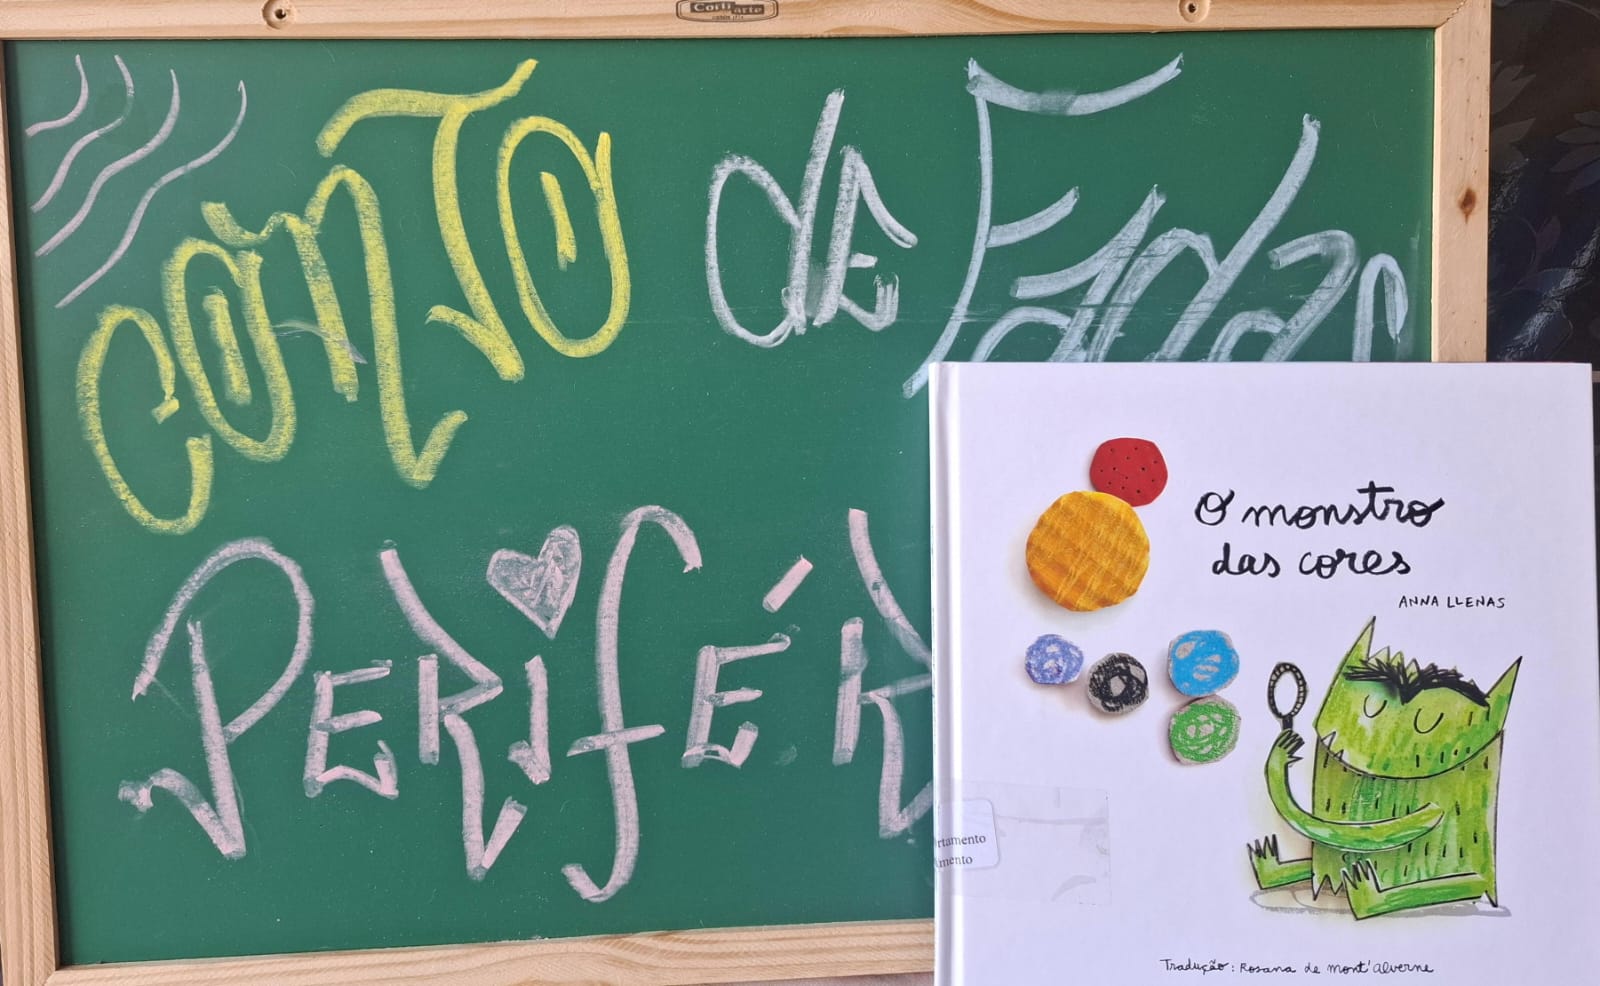 Cortiarte
CONTO de Fadas
PERIFÉR
O monstro
das cores
ANNA LLENAS
rtamento
mento
Tradução: Rosana de Mont'Alverne